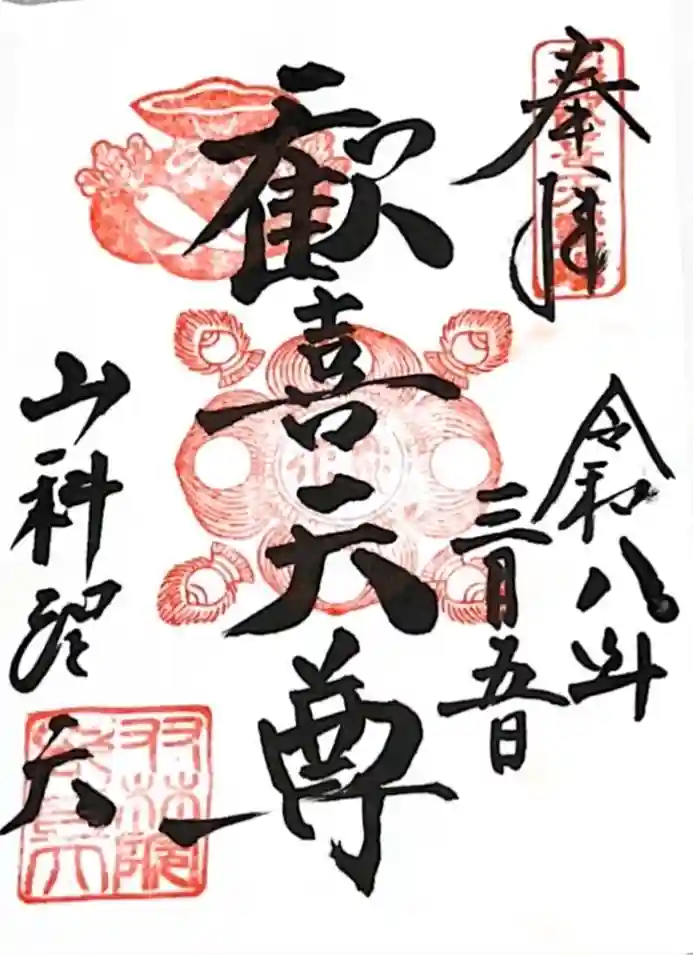 奉拝
令和八年
三月五日
歓喜天尊
山科聖天
双林院